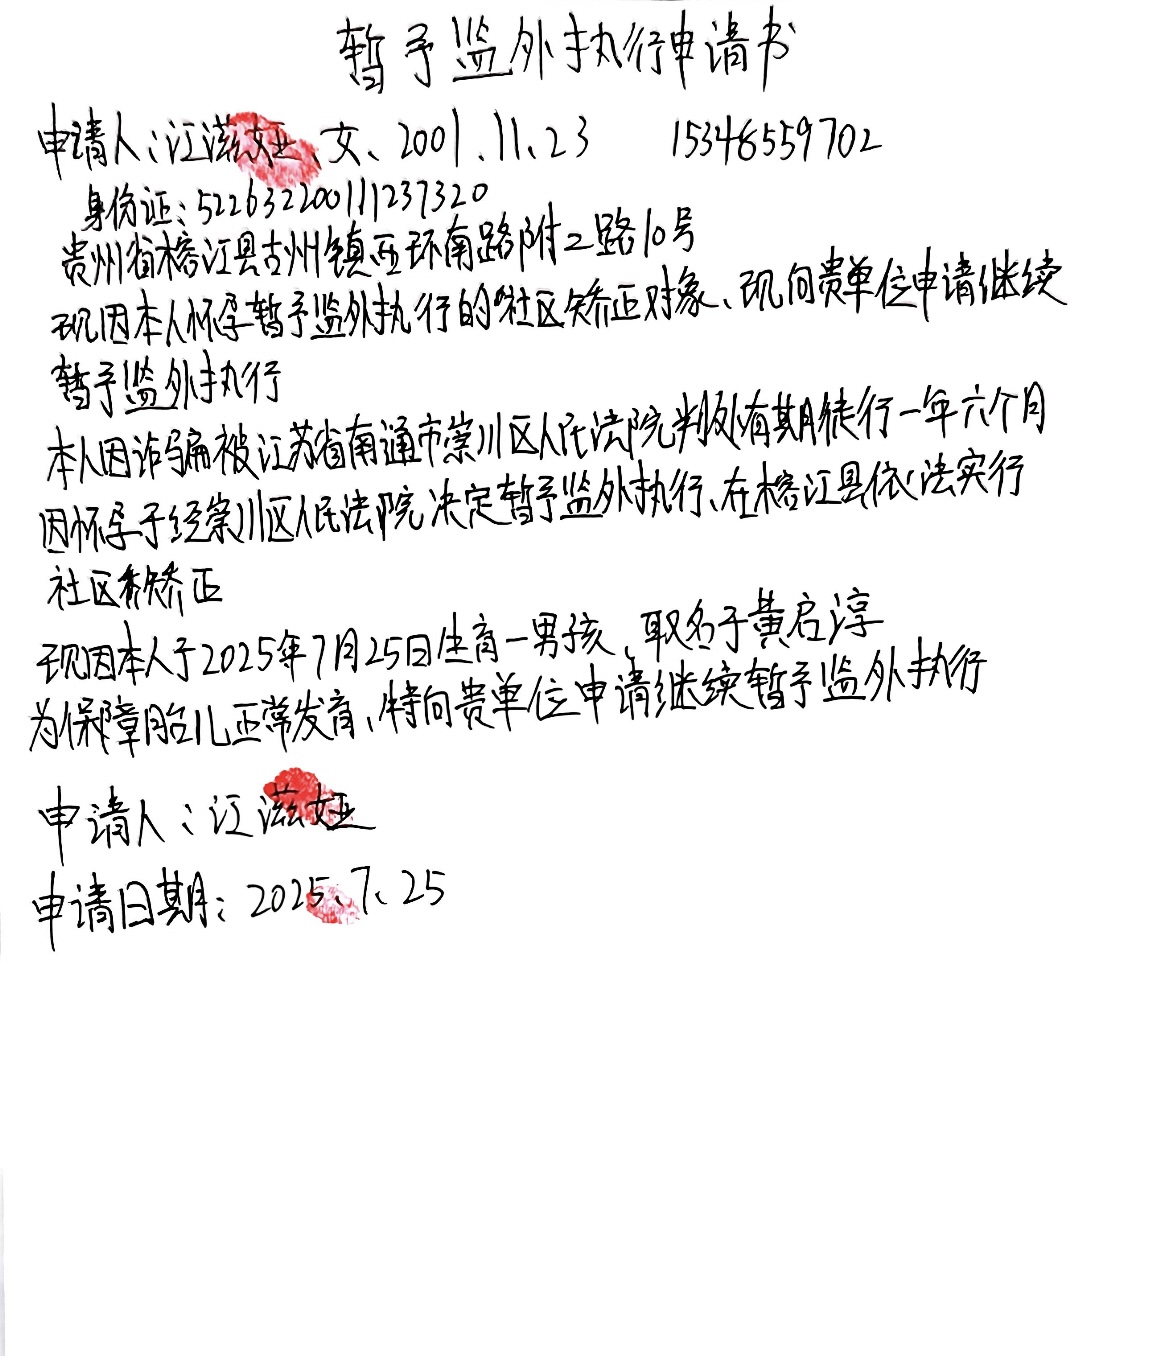 暂予监外执行申请书
申请人：江滋娅、女、2001.11.23 15346559702
身份证：522632200111237320
贵州省榕江县古州镇西环南路附二路10号
现因本人怀孕暂予监外执行的社区矫正对象、现向贵单位申请继续
暂予监外执行
本人因诈骗被江苏省南通市崇川区人民法院判处有期徒行一年六个月
因怀孕于经崇川区人民法院决定暂予监外执行、在榕江县依法实行
社区矫正
现因本人于2025年7月25日生育一男孩、取名于黄启淳
为保障胎儿正常发育、特向贵单位申请继续暂予监外执行
申请人：江滋娅
申请日期：2025、7、25